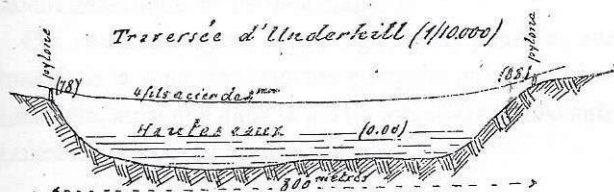 Traversée d'Underhill (1/10.000)
pylone
pylone
(78)
(85)
4 fils acier de 3 mm
Hautes eaux (0.00)
800 metres